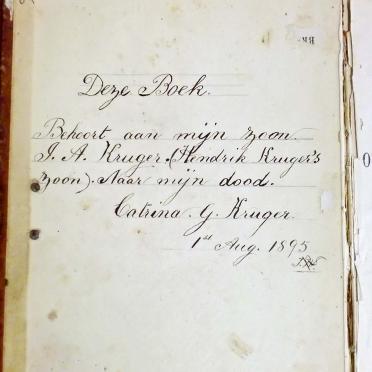 Deze Boek.
Behoort aan mijn zoon.
J. A. Kruger. (Hendrik Kruger's
zoon). Naar mijn dood.
Catrina. G. Kruger.
1st Aug. 1895